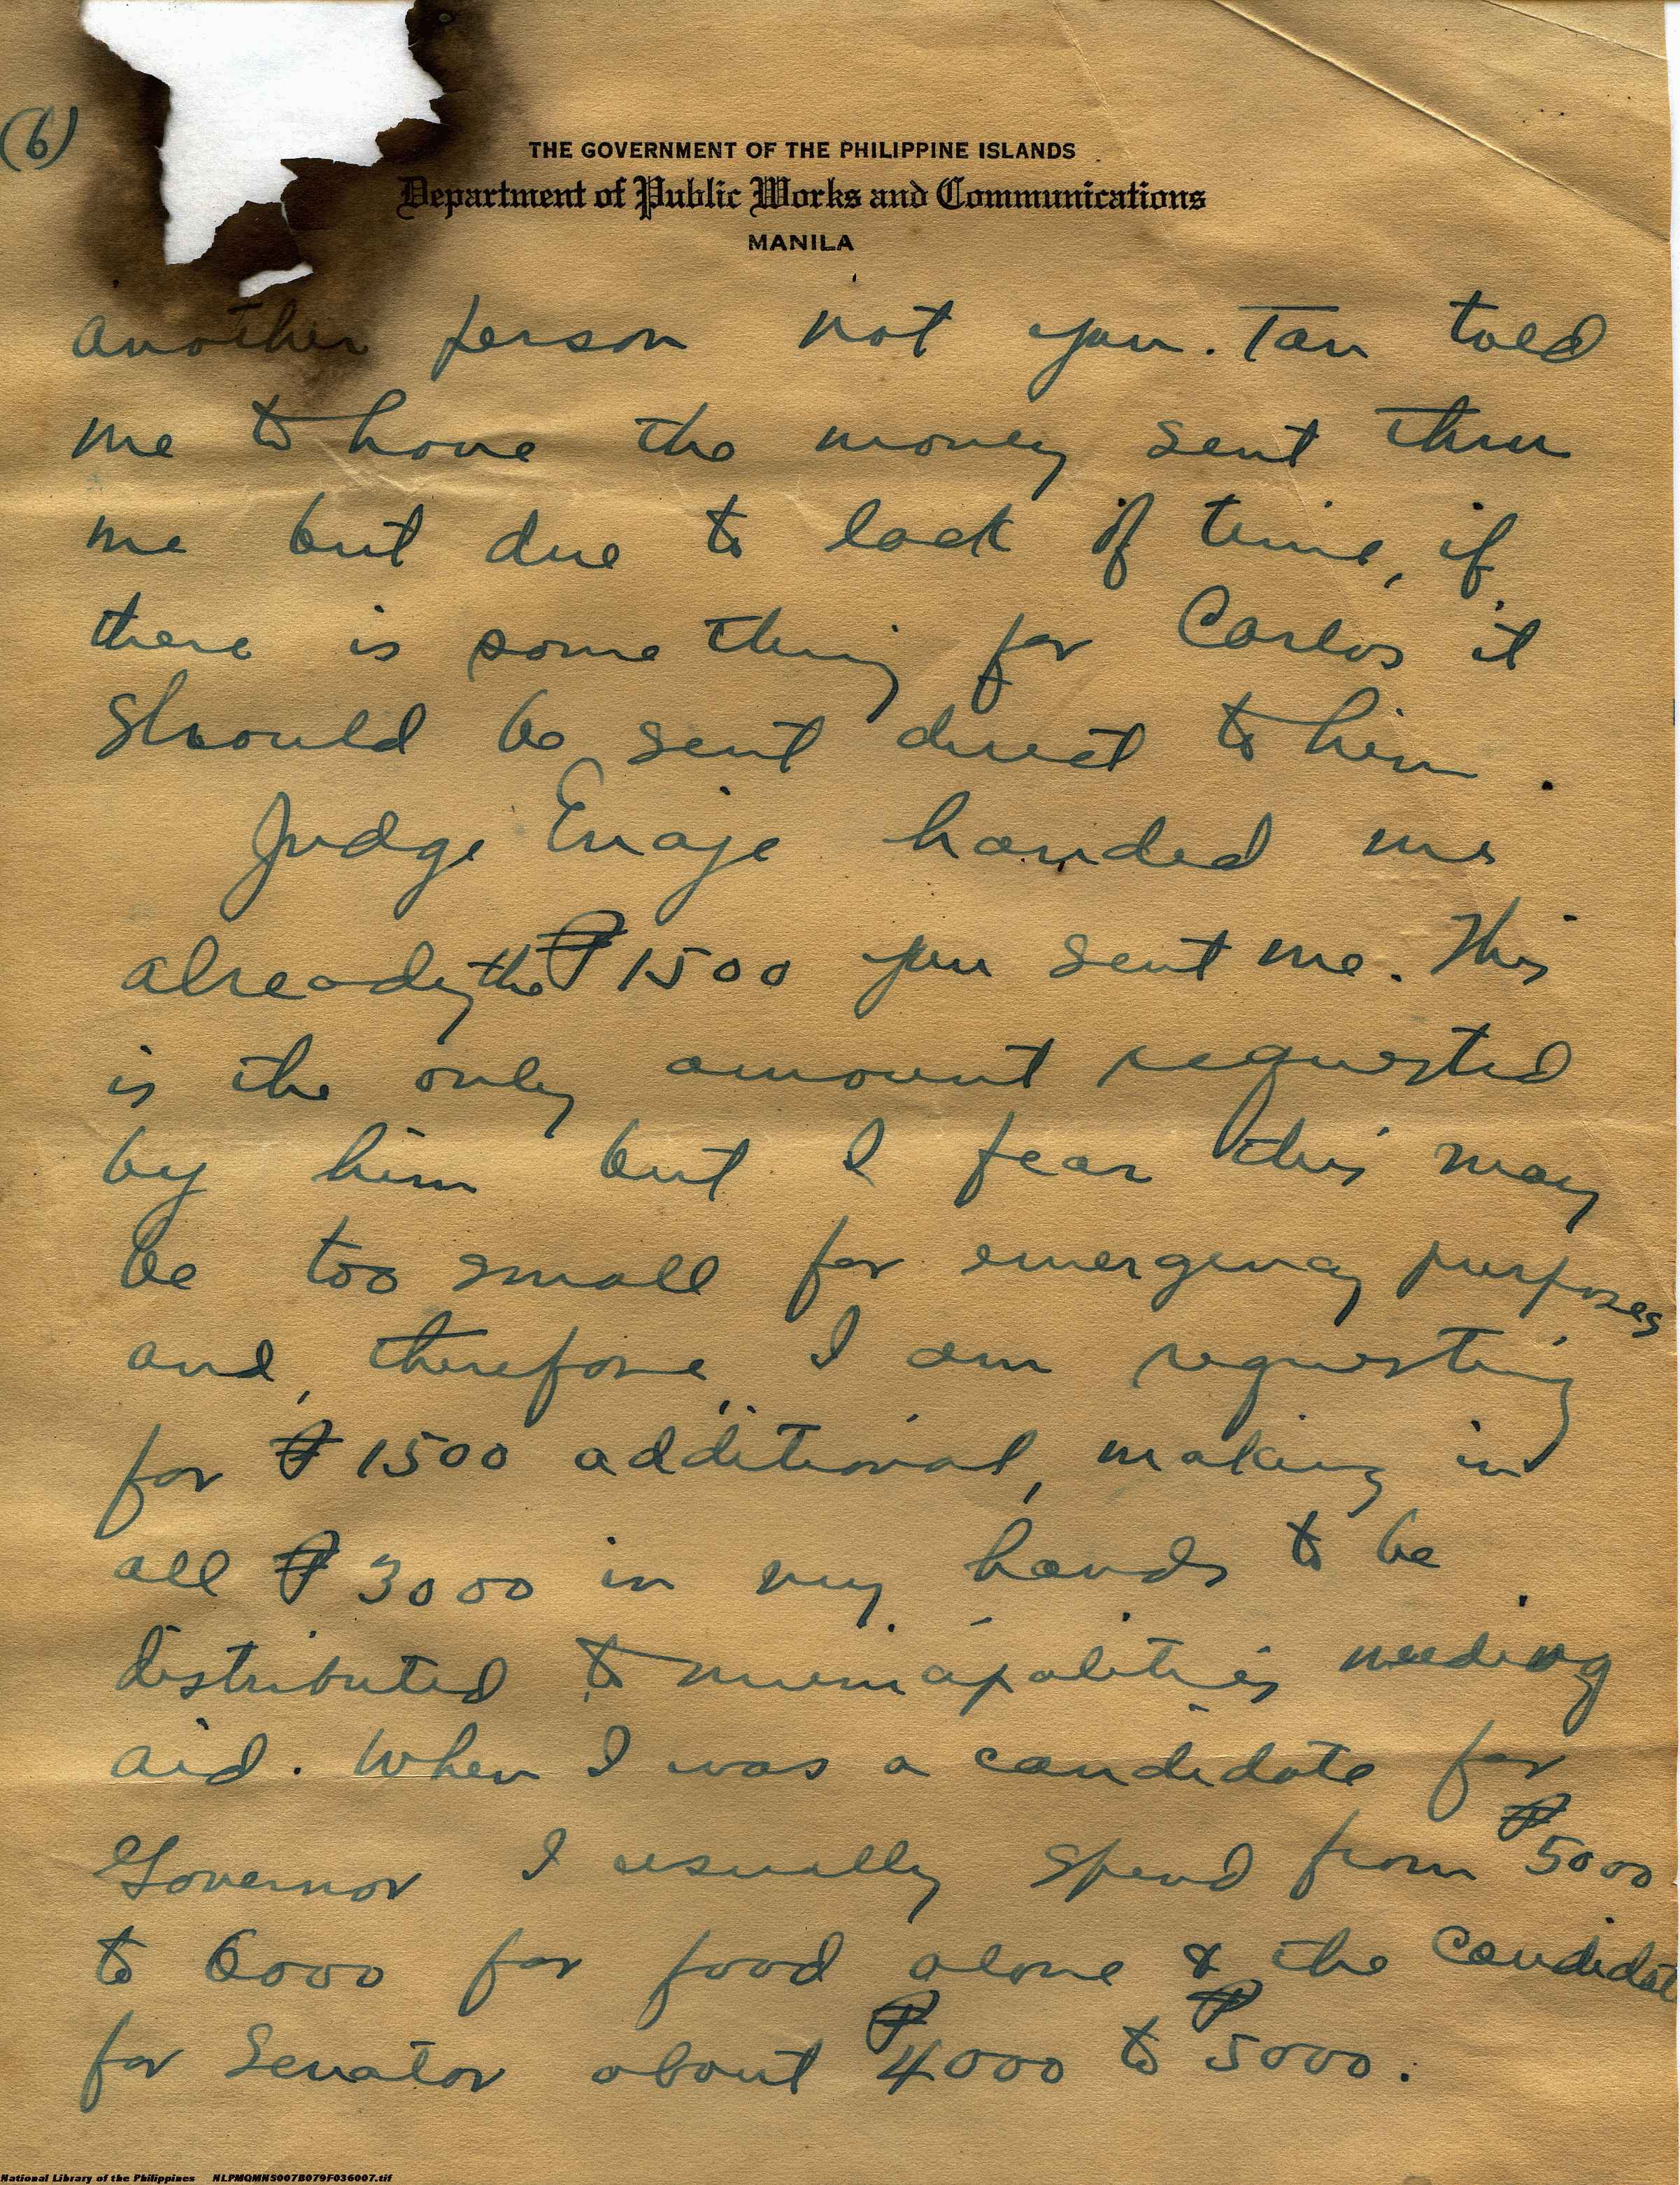 (6)
THE GOVERNMENT OF THE PHILIPPINE ISLANDS
Department of Public Works and Communications
MANILA
another person not you. Tan told
me to have the money sent thru
me but due to lack of time, if
there is something for Carlos it
should be sent direct to him.
Judge Enaje handed me
already the ₱1500 you sent me. This
is the only amount requested
by him but I fear this may
be too small for emergency purposes
and, therefore, I am requesting
for ₱1500 additional, making in
all ₱3000 in my hands to be
distributed to municipalities needing
aid. When I was a candidate for
Governor I usually spend from ₱5000
to 6000 for food alone & the candidate
for Senator about ₱4000 to ₱5000.
National Library of the Philippines NLPMQMNS007B079F036007.tif